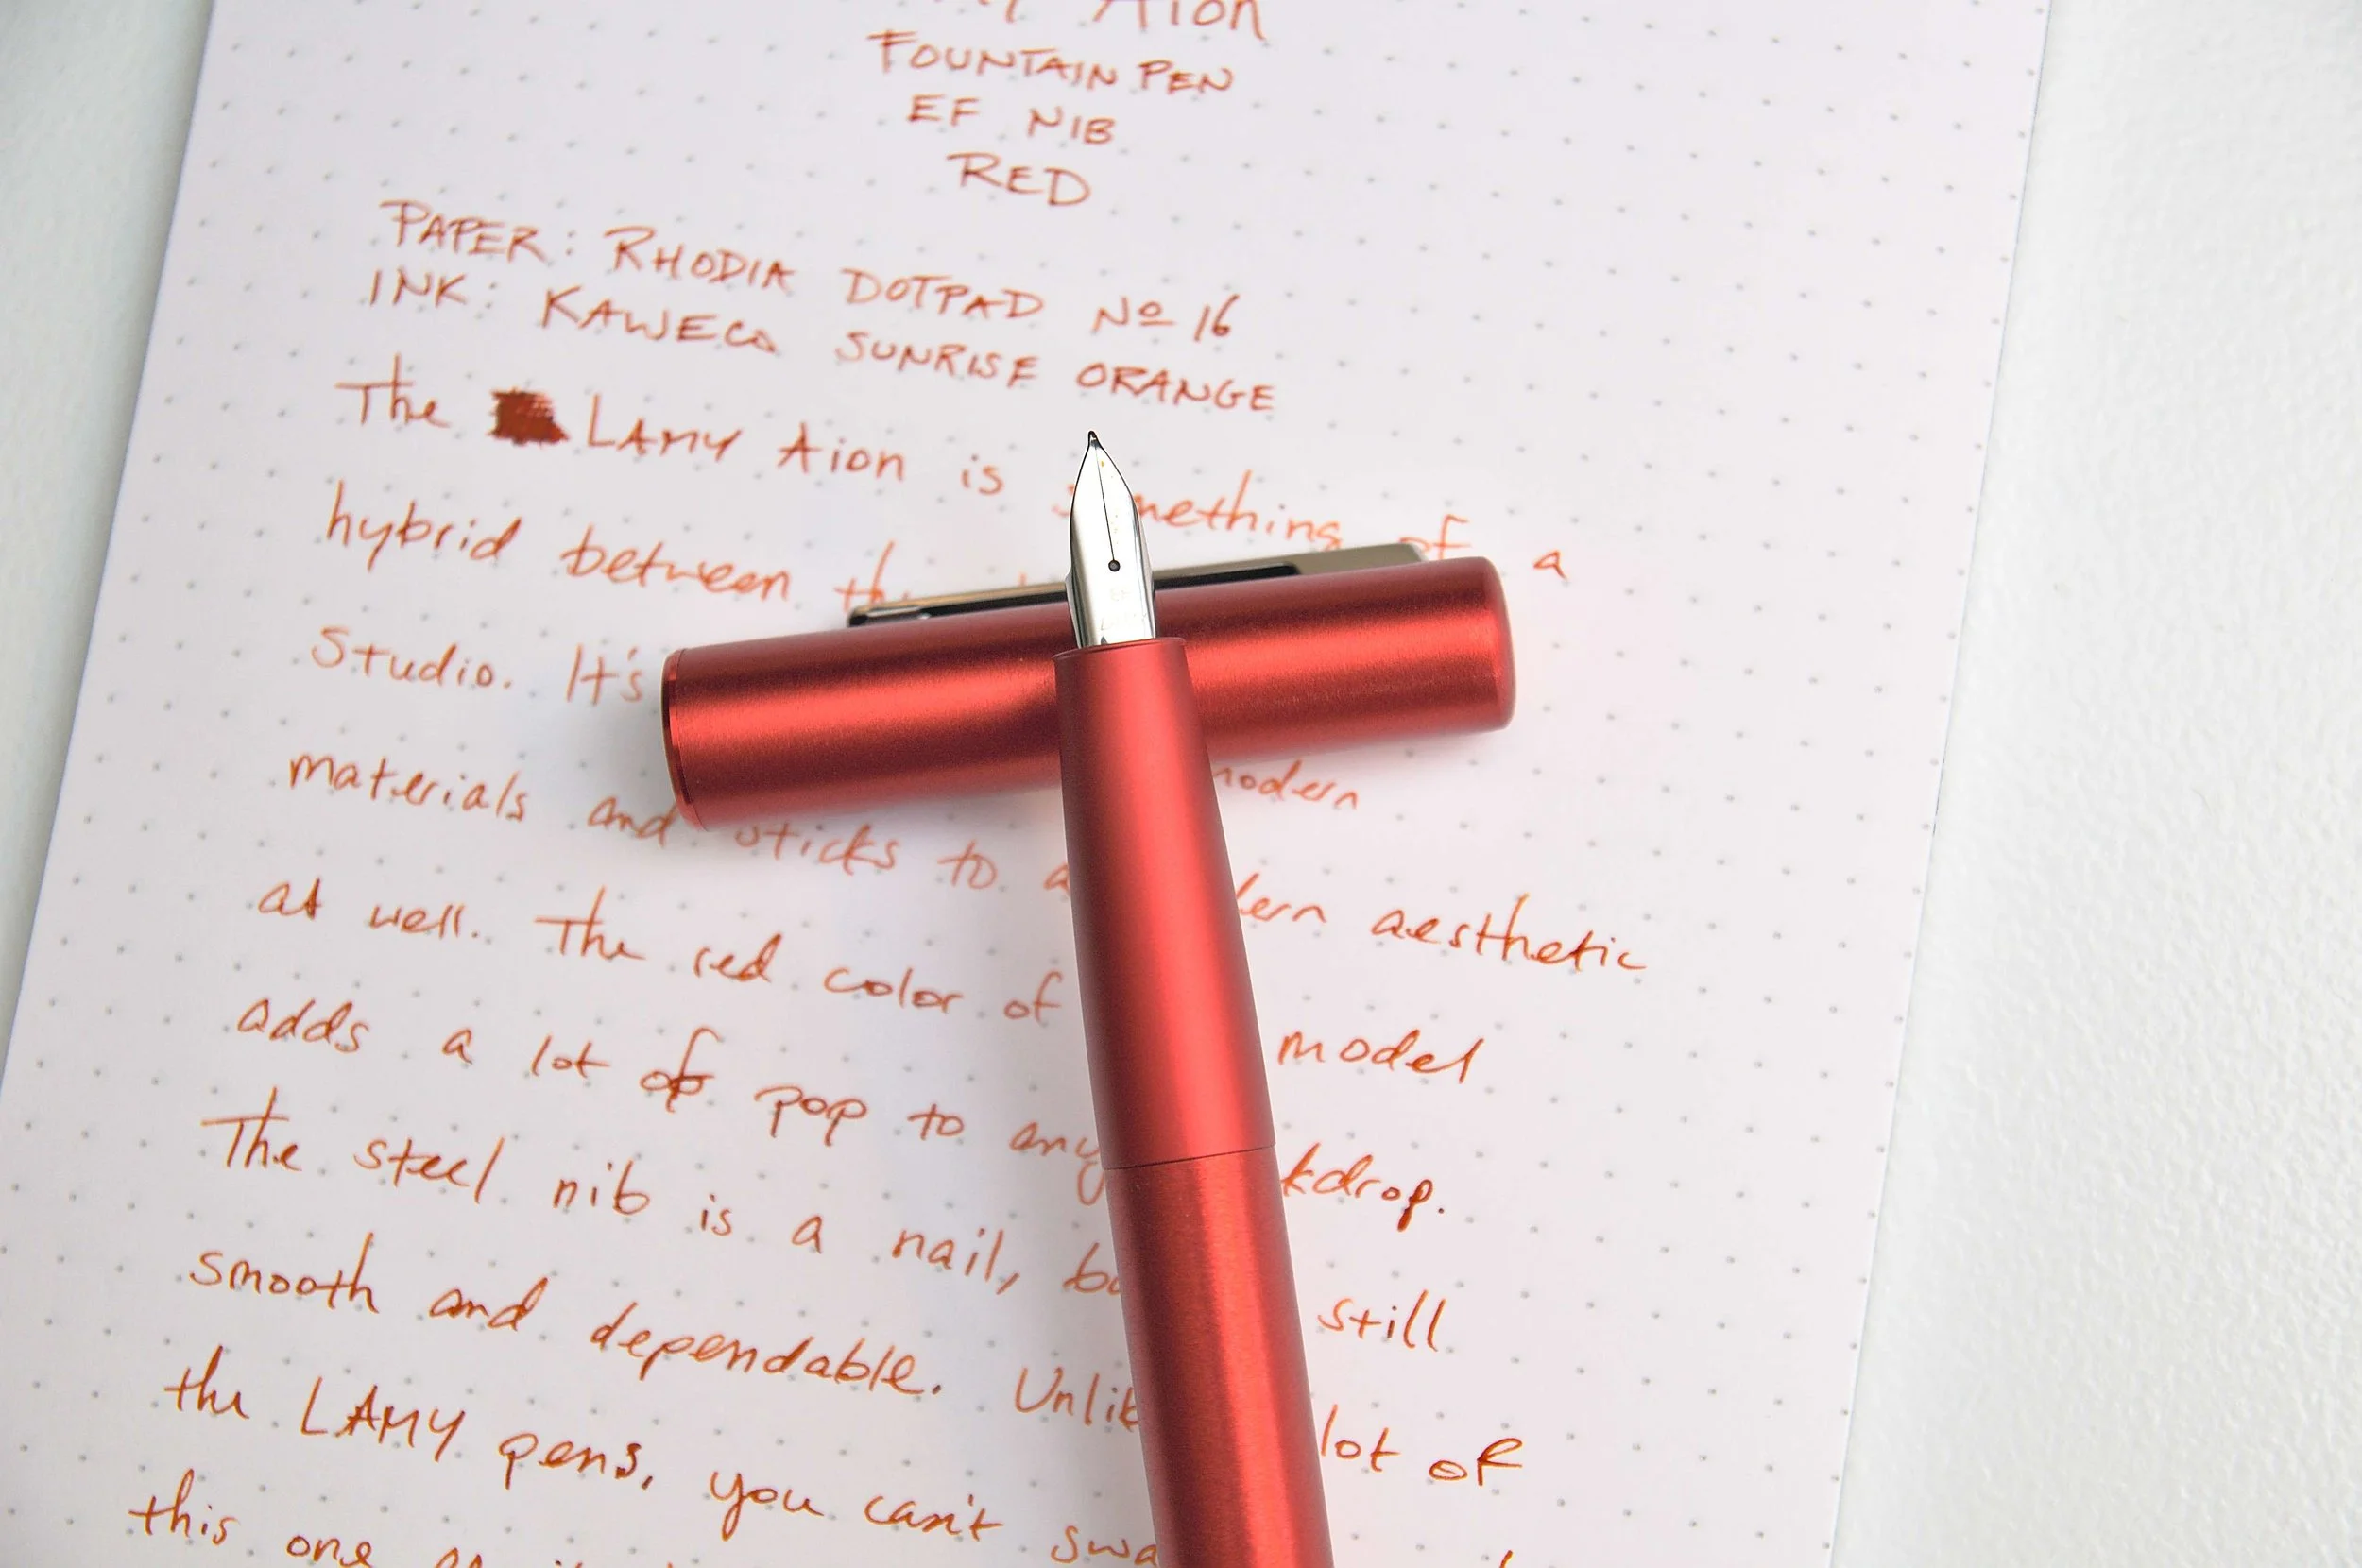 Aion
FOUNTAIN PEN
EF NIB
RED
PAPER: RHODIA DOTPAD Nº 16
INK: KAWECO SUNRISE ORANGE
The LAMY Aion is something of a
hybrid between
Studio. It's
materials and sticks to modern
at well. The red color of aesthetic
adds a lot of pop to any model
The steel nib is a nail, kdrop.
smooth and dependable. still
the LAMY pens, you can't lot of
this one